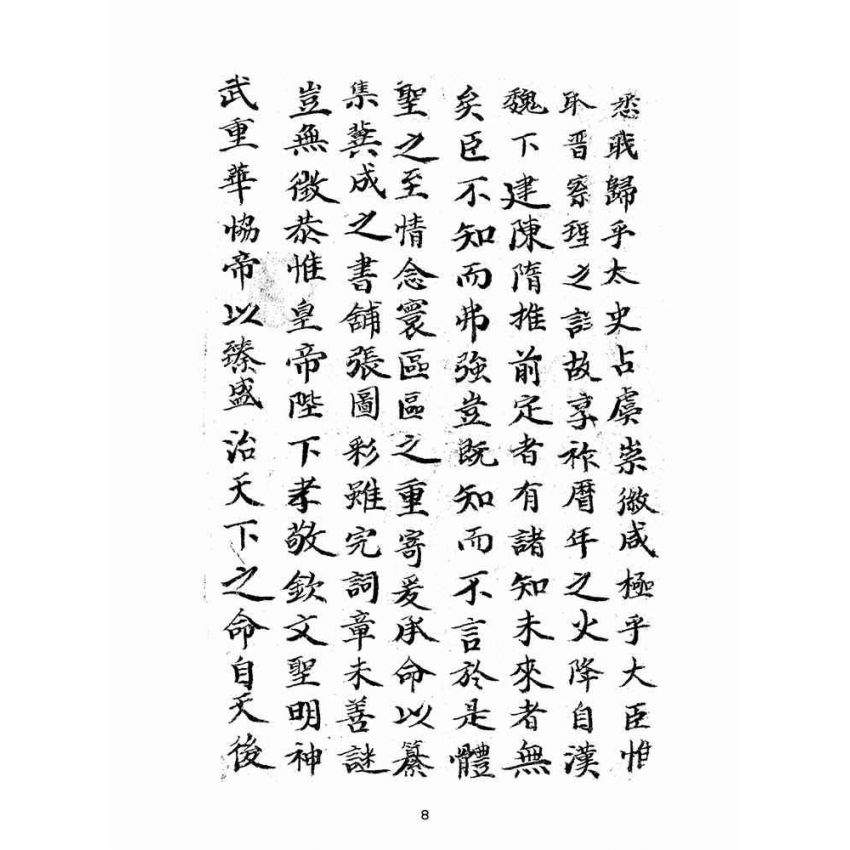 悉戢歸乎太史占虞祟徵咸極乎大臣惟
卟晋察理之訁故享祚曆年之火降自漢
魏下建陳隋推前定者有諸知未來者無
矣臣不知而弗強豈既知而不言於是體
聖之至情念寰區區之重寄爰承命以纂
集冀成之書舖張圖彩雖完詞章未善謎
豈無徵恭惟皇帝陛下孝敬欽文聖明神
武重華恊帝以臻盛治天下之命自天後
8